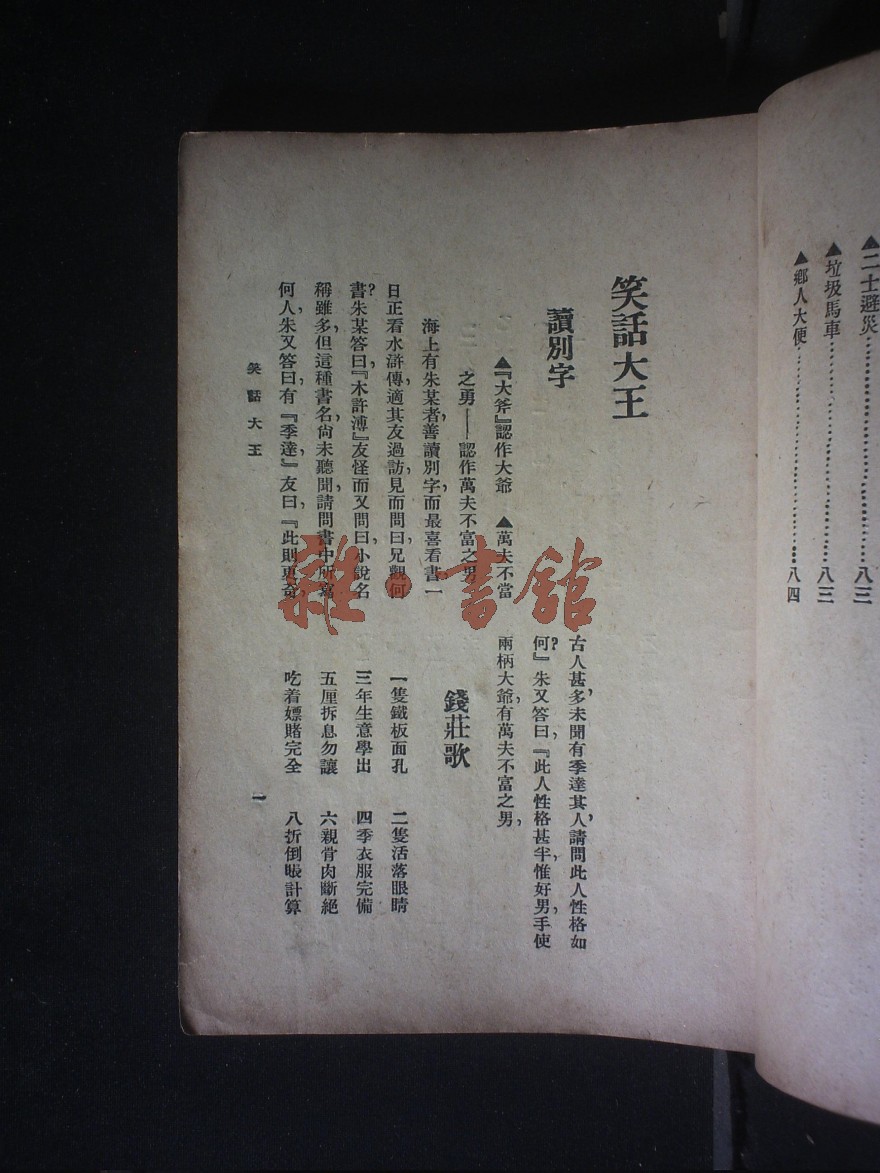 ▲二士避災⋯⋯⋯⋯⋯⋯⋯⋯八三
▲垃圾馬車⋯⋯⋯⋯⋯⋯⋯⋯八三
▲鄉人大便⋯⋯⋯⋯⋯⋯⋯⋯八四
笑話大王
讀別字
▲『大斧』認作大爺　▲萬夫不當
之勇——認作萬夫不富之男
海上有朱某者，善讀別字，而最喜看書，一
日正看水滸傳，適其友過訪，見而問曰，兄觀何
書？朱某答曰，『木許溥』友怪而又問曰，小說名
稱雖多，但這種書名，尙未聽聞，請問書中所寫
何人，朱又答曰，有『季達』友曰，『此則更奇，
古人甚多，未聞有季達其人，請問此人性格如
何？』朱又答曰，『此人性格甚半，惟好男，手使
兩柄大爺，有萬夫不富之男，
錢莊歌
一隻鐵板面孔　二隻活落眼睛
三年生意學出　四季衣服完備
五厘拆息勿讓　六親骨肉斷絕
吃着嫖賭完全　八折倒帳計算
笑話大王　一
雜·書館